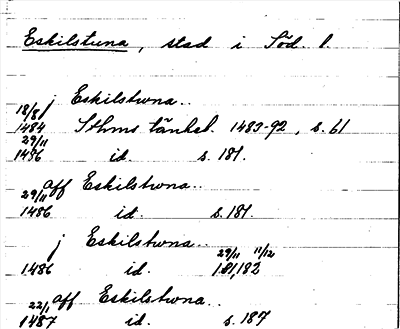 Eskilstuna, stad i Söd. l.
j Eskilstwna..
18/8
1484 Sthms tänkeb. 1483-92, s. 61
29/11
1486 id. s. 181.
aff Eskilstwna..
29/11
1486 id. s. 181.
j Eskilstwna..
29/11 11/12
1486 id. 181,182
aff Eskilstwna..
22/1
1487 id. s. 187